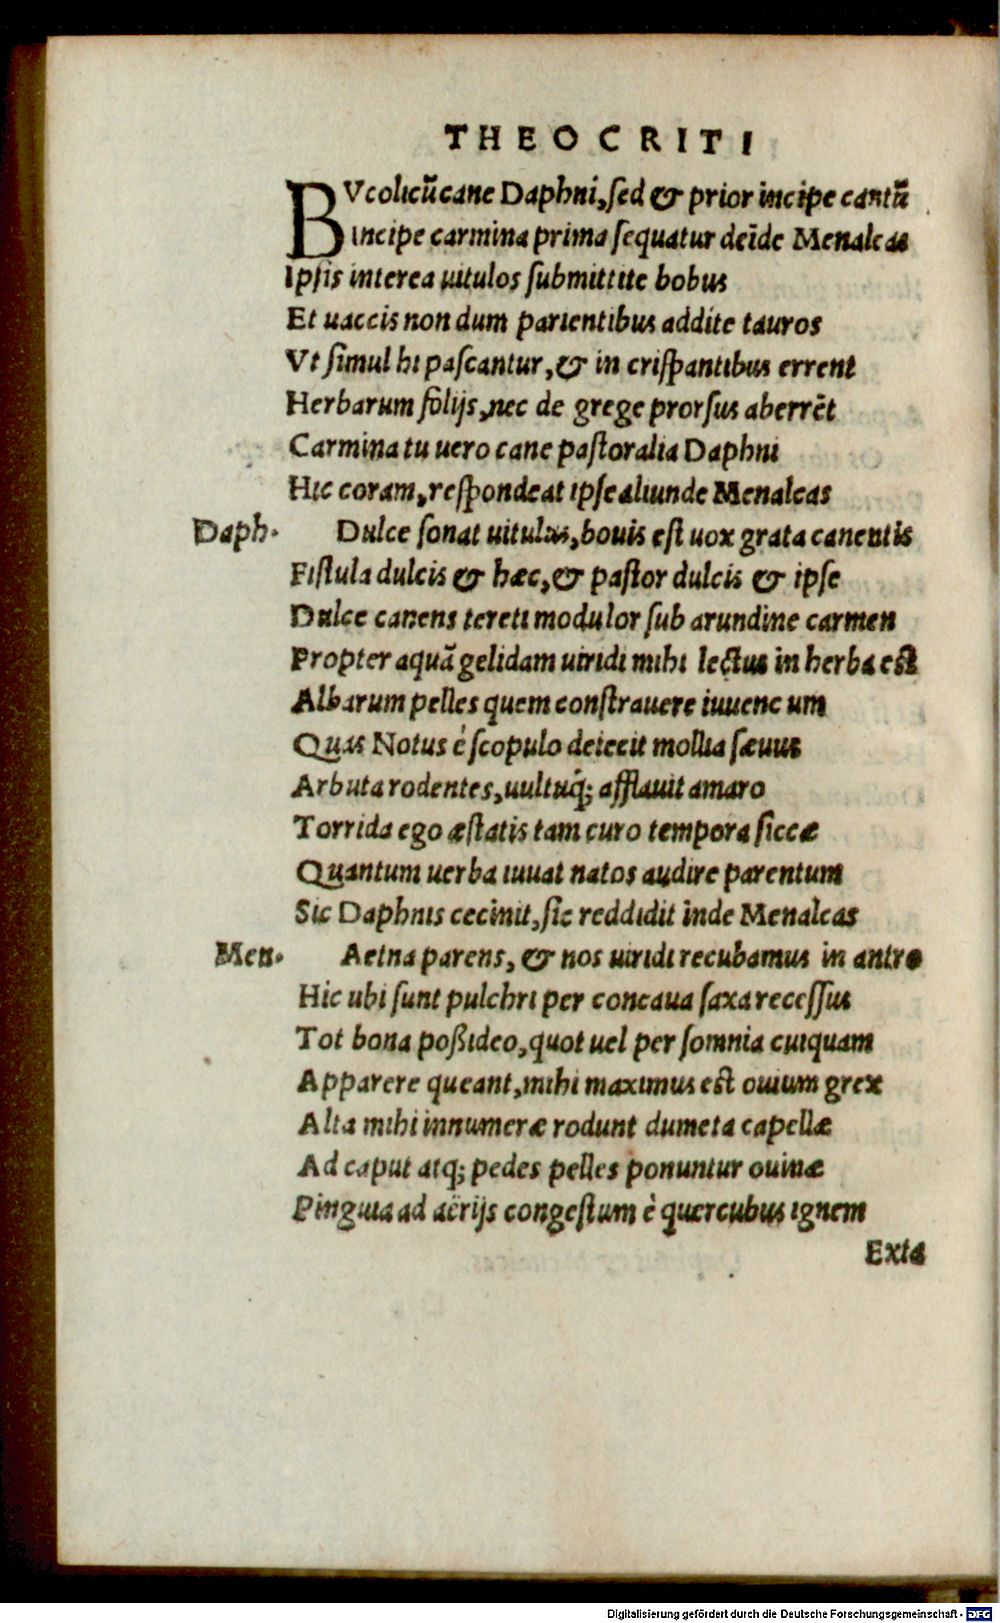 THEOCRITI
BVcolicū cane Daphni, sed & prior incipe cantū
incipe carmina prima sequatur deīde Menalcas
Ipsis interea uitulos submittite bobus
Et uaccis non dum parientibus addite tauros
Vt simul hi pascantur, & in crispantibus errent
Herbarum folijs, nec de grege prorsus aberrēt
Carmina tu uero cane pastoralia Daphni
Hic coram, respondeat ipse aliunde Menalcas
Daph. Dulce sonat uitulus, bouis est uox grata canentis
Fistula dulcis & hæc, & pastor dulcis & ipse
Dulce canens tereti modulor sub arundine carmen
Propter aquā gelidam uiridi mihi lectus in herba est
Albarum pelles quem constrauere iuuenc um
Quas Notus è scopulo deiecit mollia sæuus
Arbuta rodentes, uultuq́; afflauit amaro
Torrida ego æstatis tam curo tempora siccæ
Quantum uerba iuuat natos audire parentum
Sic Daphnis cecinit, sic reddidit inde Menalcas
Men. Aetna parens, & nos uiridi recubamus in antro
Hic ubi sunt pulchri per concaua saxa recessus
Tot bona poßideo, quot uel per somnia cuiquam
Apparere queant, mihi maximus est ouium grex
Alta mihi innumeræ rodunt dumeta capellæ
Ad caput atq; pedes pelles ponuntur ouinæ
Pinguia ad aërijs congestum è quercubus ignem
Exta
Digitalisierung gefördert durch die Deutsche Forschungsgemeinschaft - DFG